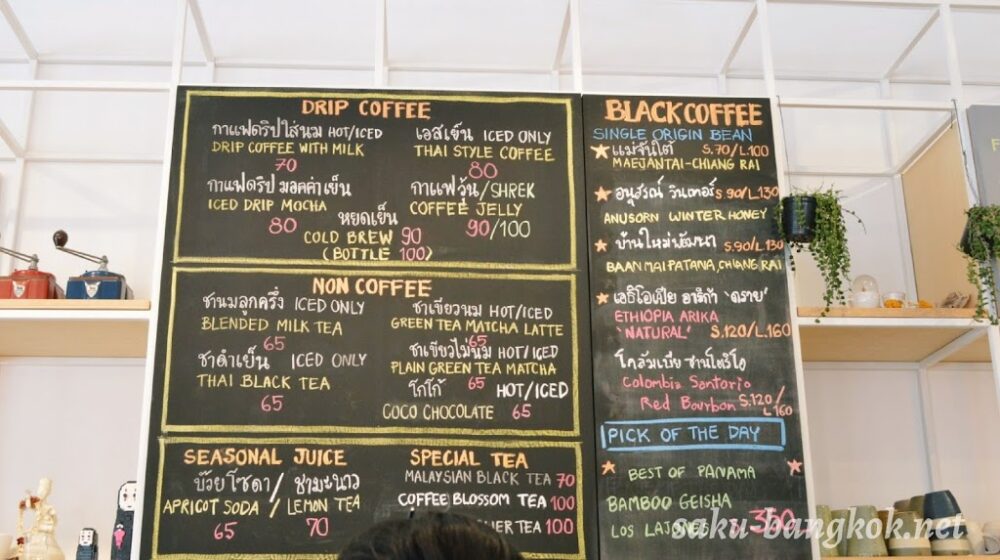 DRIP COFFEE
กาแฟดริปใส่นม HOT/ICED
DRIP COFFEE WITH MILK
70
เอสเย็น ICED ONLY
THAI STYLE COFFEE
80
กาแฟดริป มอคค่าเย็น
ICED DRIP MOCHA
80
กาแฟวุ้น/SHREK
COFFEE JELLY
90/100
หยดเย็น
COLD BREW 90
(BOTTLE 100)
NON COFFEE
ชานมลูกครึ่ง ICED ONLY
BLENDED MILK TEA
65
ชาเขียวนม HOT/ICED
GREEN TEA MATCHA LATTE
65
ชาดำเย็น ICED ONLY
THAI BLACK TEA
65
ชาเขียวไม่นม HOT/ICED
PLAIN GREEN TEA MATCHA
65
โกโก้ HOT/ICED
COCO CHOCOLATE 65
SEASONAL JUICE
บ๊วยโซดา/ ชามะนาว
APRICOT SODA / LEMON TEA
65 70
SPECIAL TEA
MALAYSIAN BLACK TEA 70
COFFEE BLOSSOM TEA 100
TEA 100
BLACK COFFEE
SINGLE ORIGIN BEAN
แม่จันใต้ S.70/L.100
MAEJANTAI-CHIANG RAI
อนุสรณ์ วินเทอร์ S.90/L.130
ANUSORN WINTER HONEY
บ้านใหม่พัฒนา S.90/L.130
BAAN MAI PATANA, CHIANG RAI
เอธิโอเปีย อาริก้า 'ดราย'
ETHIOPIA ARIKA
'NATURAL' S.120/L.160
โคลัมเบีย ซานโทริโอ
Colombia Santorio
Red Bourbon S.120/
L.160
PICK OF THE DAY
BEST OF PANAMA
BAMBOO GEISHA
LOS LAJONES
saku-bangkok.net